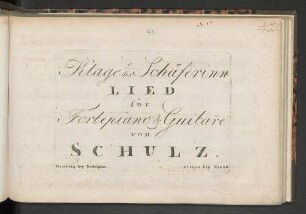 Klage der Schäferinn
LIED
für
Fortepiano & Guitare
von
SCHULZ.
Hamburg bey